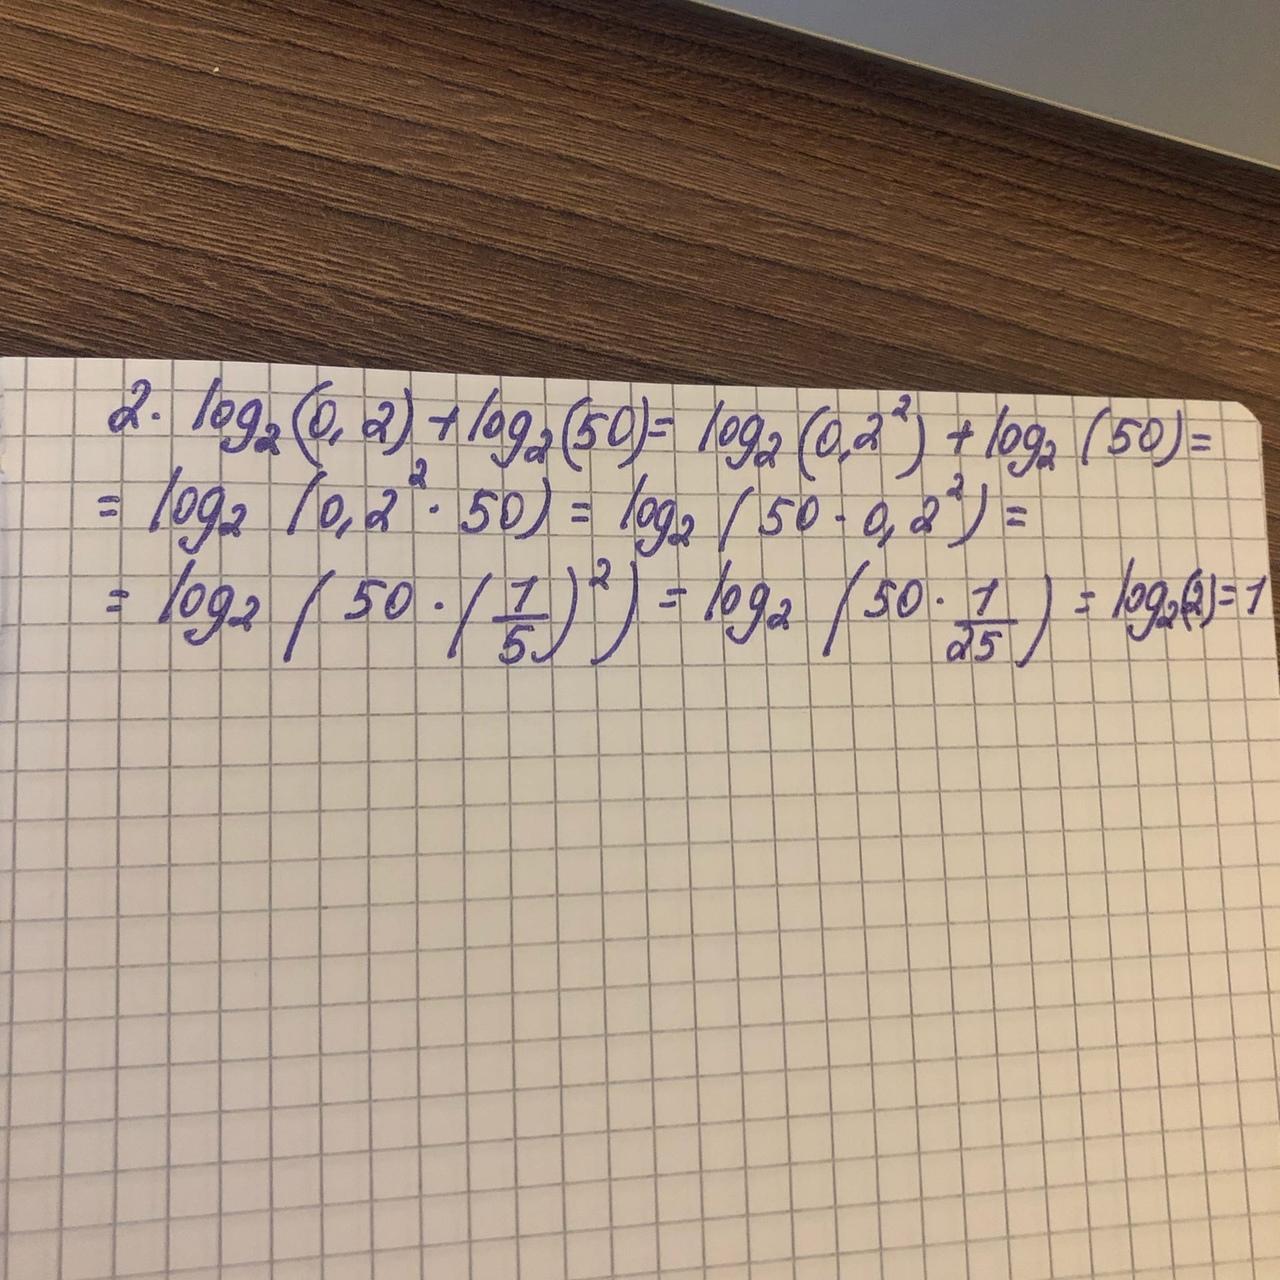 2. log₂(0,2) + log₂(50) = log₂(0,2²) + log₂(50) =
= log₂(0,2² · 50) = log₂(50 · 0,2²) =
= log₂(50 · (1/5)²) = log₂(50 · 1/25) = log₂(2) = 1